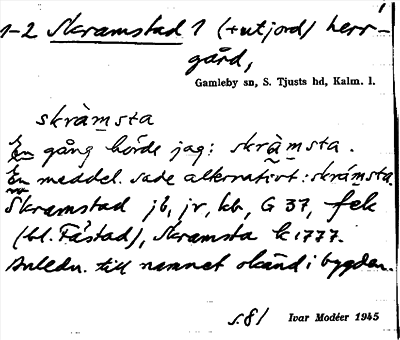 1
1-2 Skramstad 1 (+utjord) herr-
gård,
Gamleby sn, S. Tjusts hd, Kalm. l.
skràmsta
En gång hörde jag: skràmsta.
En meddel. sade alternativt: skrámsta.
Skramstad jb, jr, kb, G 37, fek
(bl. Fastad), Skramsta k 1777.
Anledn. till namnet okänd i bygden.
s. 81 Ivar Modéer 1945